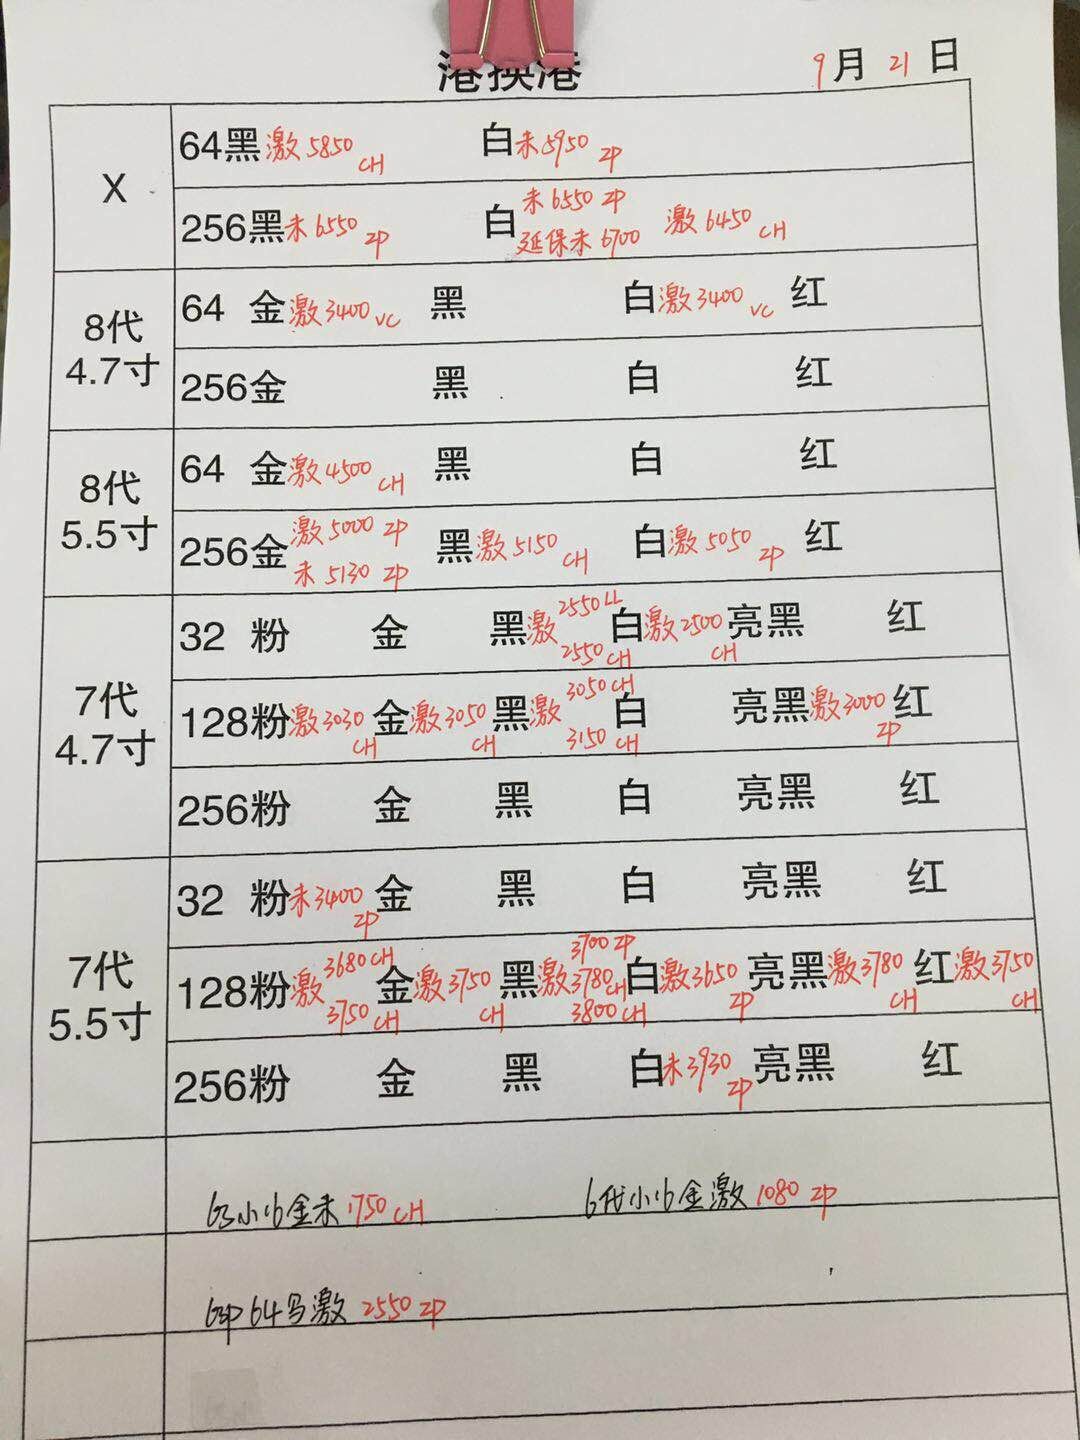 港换港 9月21日
X
64黑激5850 CH 白未5950 ZP
256黑未6550 ZP 白未6550 ZP 延保未6700 激6450 CH
8代
4.7寸
64 金激3400 VC 黑 白激3400 VC 红
256金 黑 白 红
8代
5.5寸
64 金激4500 CH 黑 白 红
256金激5000 ZP 未5130 ZP 黑激5150 CH 白激5050 ZP 红
7代
4.7寸
32 粉 金 黑激2550 LL 2550 CH 白激2500 CH 亮黑 红
128粉激3030 CH 金激3050 CH 黑激3050 CH 3150 CH 白 亮黑激3000 ZP 红
256粉 金 黑 白 亮黑 红
7代
5.5寸
32 粉未3400 ZP 金 黑 白 亮黑 红
128粉激3680 CH 3750 CH 金激3750 CH 黑激3700 ZP 3780 CH 3800 CH 白激3650 ZP 亮黑激3780 CH 红激3750 CH
256粉 金 黑 白未3930 ZP 亮黑 红
小16金未1750 CH 6代小16金激1080 ZP
64 激2550 ZP